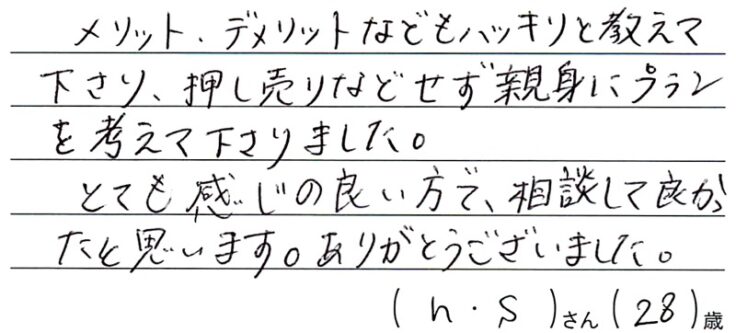 メリット、デメリットなどもハッキリと教えて
下さり、押し売りなどせず親身にプラン
を考えて下さりました。
とても感じの良い方で、相談して良かっ
たと思います。ありがとうございました。
(n・S)さん(28)歳